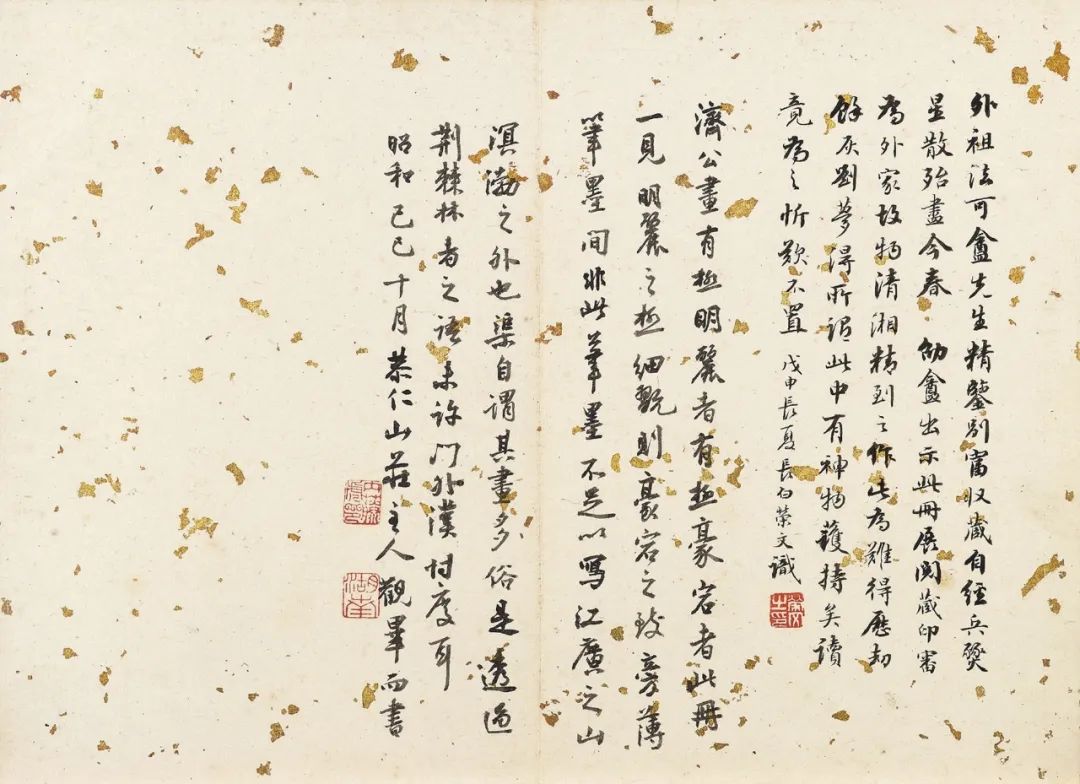 外祖法可盦先生精鑒別富收藏自經兵燹
星散殆盡今春 劬盦出示此冊展閱藏印審
為外家故物清湘精到之作此為難得歷劫
餘灰劉夢得所謂此中有神物護持矣讀
竟為之忻歎不置 戊申長夏長白榮文識
濟公畫有極明麗者有極豪宕者此冊
一見明麗之極細翫則豪宕之致旁薄
筆墨間非此筆墨不足以寫江廣之山
溟渤之外也渠自謂其畫多俗是透過
荆棘林者之語未許門外漢忖度耳
昭和己巳十月恭仁山莊主人觀畢而書
湖南